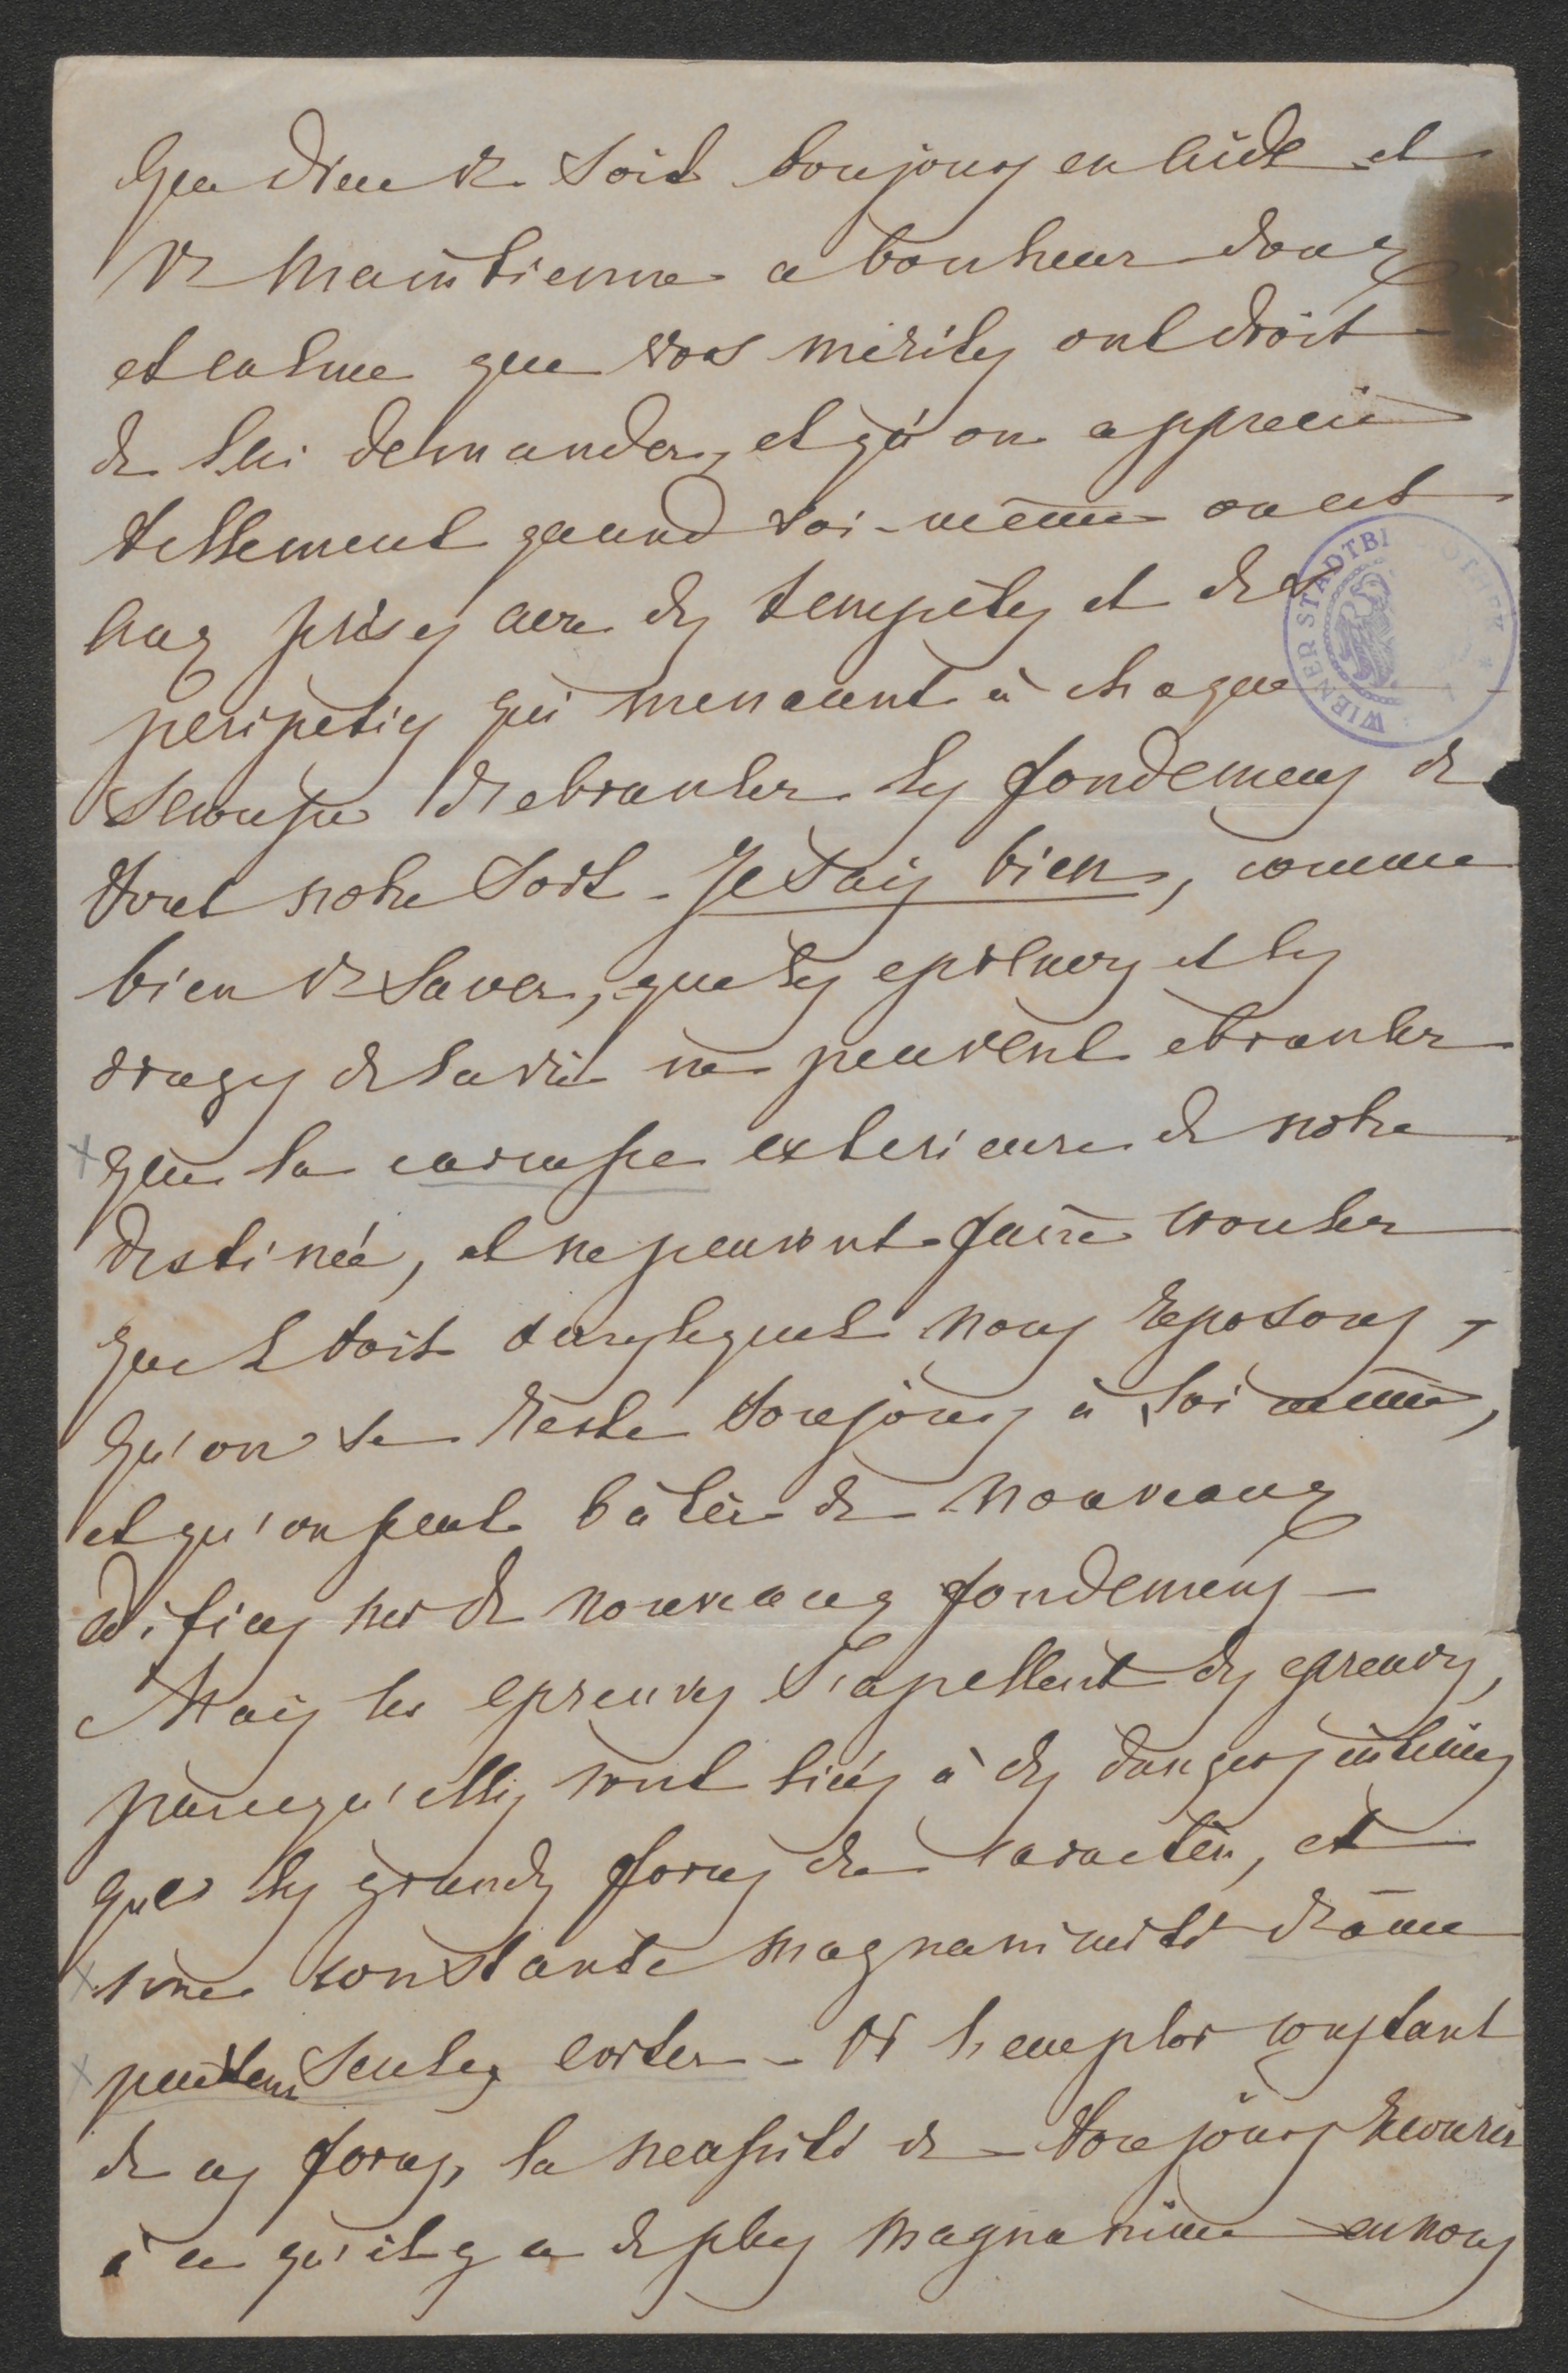 Que Dieu vs soit toujours en aide et
vs maintienne ce bonheur doux
et calme que vos mérites ont droit
de lui demander, et qu'on apprecie
tellement quand soi-même on est
aux prises avec des tempêtes et des
peripeties qui menacent à chaque
secousse d'ebranler les fondemens de
tout notre sort - Je sais bien, comme
bien vs savez, que les epreuves et les
orages de la vie ne peuvent ebranler
que la carcasse exterieure de notre
destinée, et ne peuvent faire crouler
que l toit sous lequel nous reposons,
qu'on se reste toujours à soi même,
et qu'on peut bâtir de nouveaux
edifices sur de nouveaux fondemens -
Mais les epreuves s'apellent des epreuves,
parcequ'elles sont liées à des dangers intimes
que les grandes forces de caractère, et
une constante magnanimité d'âme
peuvent seules eviter - Or l'emploi constant
de ces forces, la necessité de toujours recourir
à ce qu'il y a de plus magnanime en nous
WIENER STADTBI OTHEK *